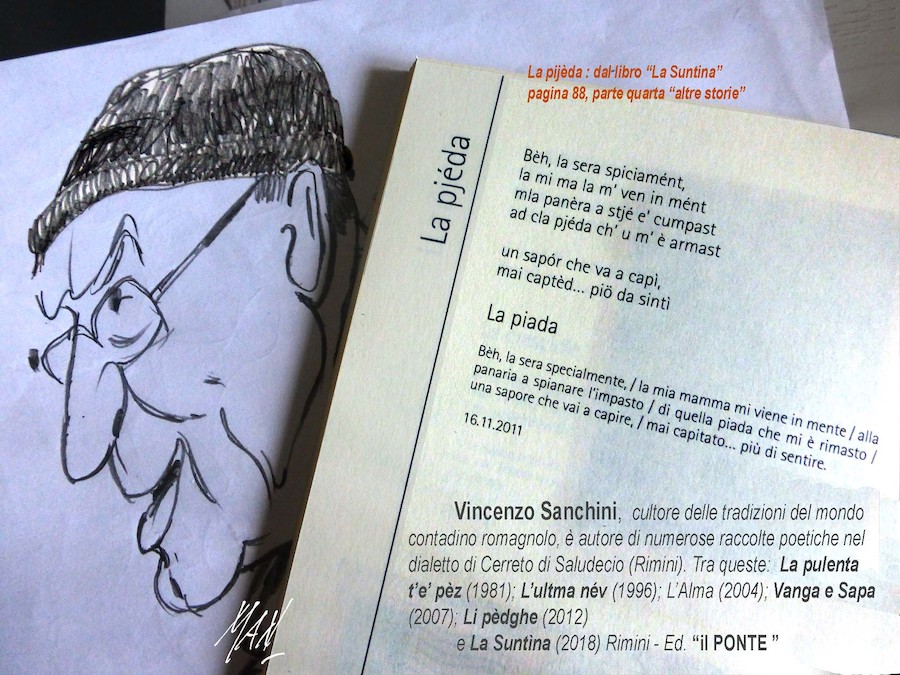 La pijèda : dal libro “La Suntina”
pagina 88, parte quarta “altre storie”
La pjéda
Bèh, la sera spiciamént,
la mi ma la m' ven in mént
mla panèra a stjé e' cumpast
ad cla pjéda ch' u m' è armast
un sapór che va a capì,
mai captèd... piö da sintì
La piada
Bèh, la sera specialmente, / la mia mamma mi viene in mente / alla
panaria a spianare l'impasto / di quella piada che mi è rimasto /
una sapore che vai a capire, / mai capitato... più di sentire.
16.11.2011
Vincenzo Sanchini, cultore delle tradizioni del mondo
contadino romagnolo, è autore di numerose raccolte poetiche nel
dialetto di Cerreto di Saludecio (Rimini). Tra queste: La pulenta
t'e' pèz (1981); L'ultma név (1996); L'Alma (2004); Vanga e Sapa
(2007); Li pèdghe (2012)
e La Suntina (2018) Rimini - Ed. “il PONTE ”
MAN